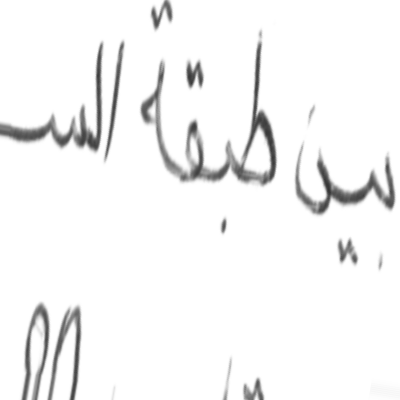 بين طبقة السـ